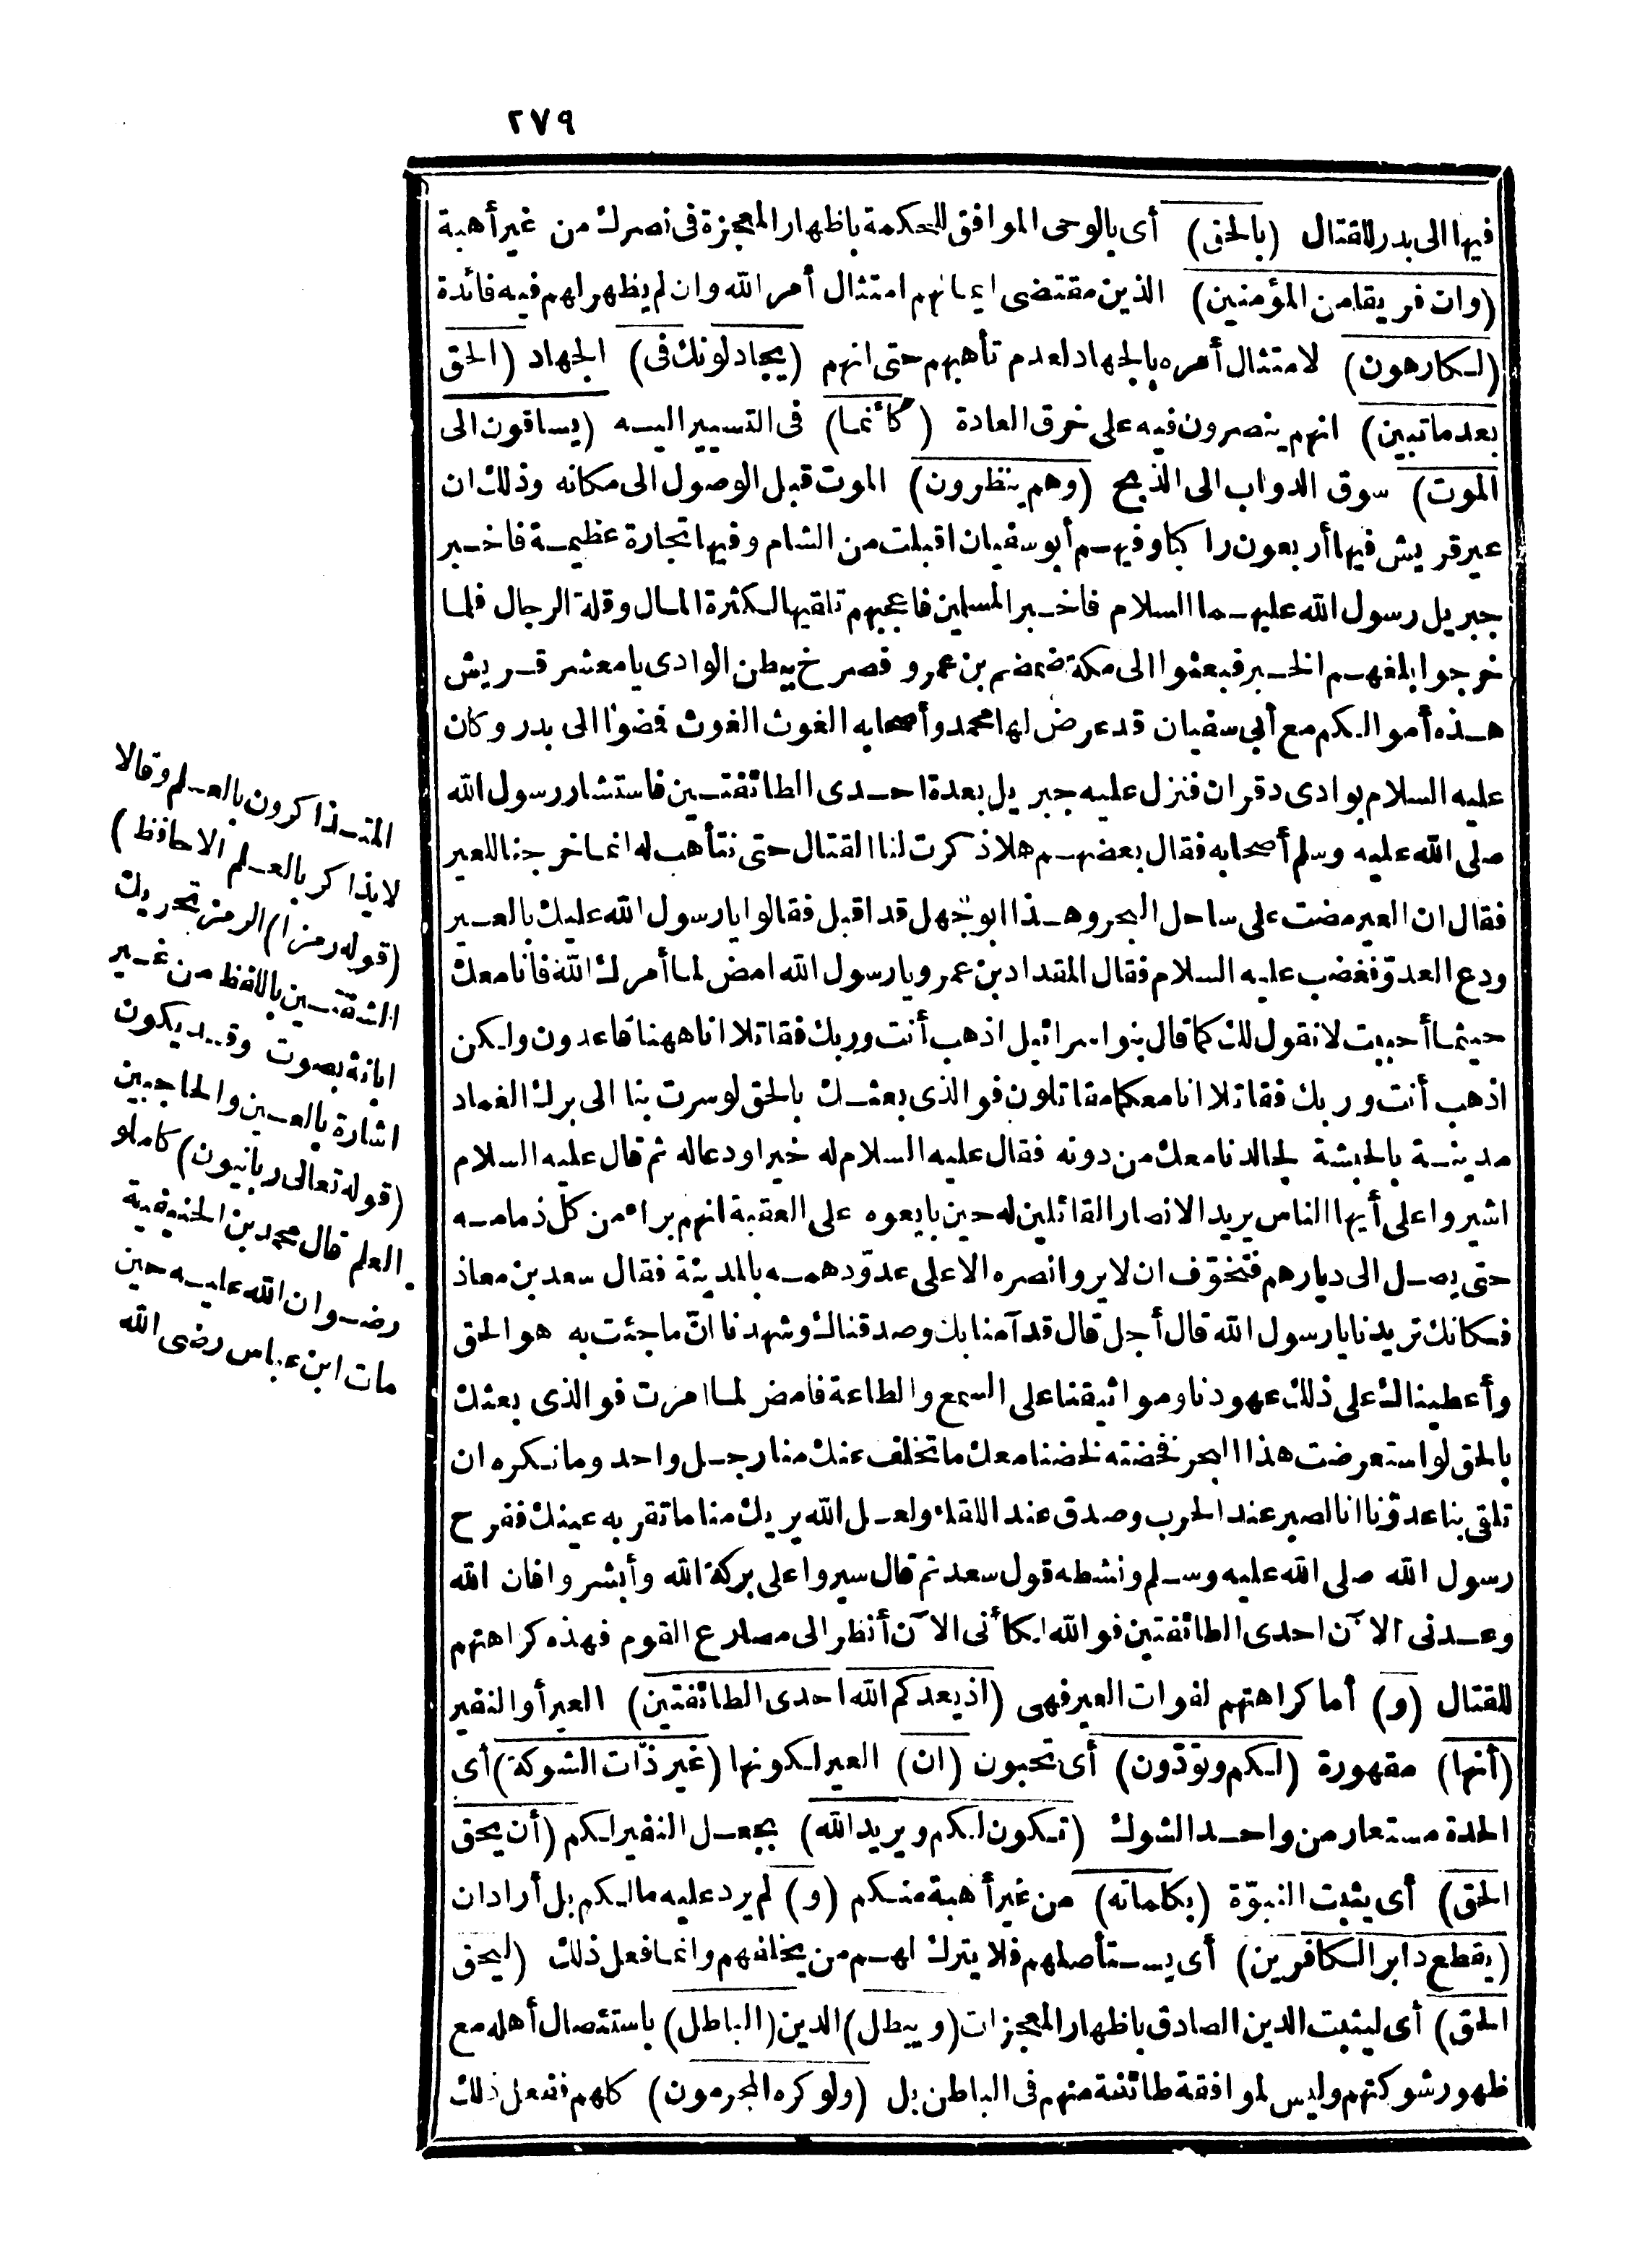 ٢٧٩
فيها الى بدر للقتال (بالحق) أى بالوحى الموافق للحكمة باظهار المعجزة فى نصرك من غير أهبة
(وان فريقا من المؤمنين) الذين مقتضى ايمانهم امتثال أمر الله وان لم يظهر لهم فيه فائدة
(لكارهون) لامتثال أمره بالجهاد لعدم تأهبهم حتى انهم (يجادلونك فى) الجهاد (الحق
بعد ما تبين) انهم ينصرون فيه على خرق العادة (كأنما) فى التسيير اليه (يساقون الى
الموت) سوق الدواب الى الذبح (وهم ينظرون) الموت قبل الوصول الى مكانه وذلك ان
عير قريش فيها أربعون راكبا وفيهم أبو سفيان اقبلت من الشام وفيها تجارة عظيمة فاخبر
جبريل رسول الله عليهما السلام فاخبر المسلمين فاعجبهم تلقيها لكثرة المال وقلة الرجال فلما
خرجوا بلغهم الخبر فبعثوا الى مكة ضمضم بن عمرو فصرخ ببطن الوادى يا معشر قريش
هذه أموالكم مع أبى سفيان قد عرض لها محمد وأصحابه الغوث الغوث فمضوا الى بدر وكان
عليه السلام بوادى دقران فنزل عليه جبريل بعدة احدى الطائفتين فاستشار رسول الله
صلى الله عليه وسلم أصحابه فقال بعضهم هلا ذكرت لنا القتال حتى نتأهب له انما خرجنا للعير
فقال ان العير مضت على ساحل البحر وهذا ابو جهل قد اقبل فقالوا يا رسول الله عليك بالعير
ودع العدوّ فغضب عليه السلام فقال المقداد بن عمرو يا رسول الله امض لما أمرك الله فأنا معك
حيثما أحببت لا نقول لك كما قال بنو اسرائيل اذهب أنت وربك فقاتلا انا ههنا قاعدون ولكن
اذهب أنت وربك فقاتلا انا معكما مقاتلون فو الذى بعثك بالحق لو سرت بنا الى برك الغماد
مدينة بالحبشة لجالدنا معك من دونه فقال عليه السلام له خيرا ودعا له ثم قال عليه السلام
اشيروا على أيها الناس يريد الانصار القائلين له حين بايعوه على العقبة انهم برآء من كل ذمامه
حتى يصل الى ديارهم فتخوّف ان لا يروا نصره الا على عدوّ دهمه بالمدينة فقال سعد بن معاذ
فكانك تريدنا يا رسول الله قال أجل قال قد آمنا بك وصدقناك وشهدنا انّ ما جئت به هو الحق
وأعطيناك على ذلك عهودنا ومواثيقنا على السمع والطاعة فامض لما امرت فو الذى بعثك
بالحق لو استعرضت هذا البحر فخضته لخضنا معك ما تخلف عنك منا رجل واحد وما نكره ان
تلقى بنا عدوّنا انا لصبر عند الحرب وصدق عند اللقاء ولعل الله يريك منا ما تقر به عينك ففرح
رسول الله صلى الله عليه وسلم ونشطه قول سعد ثم قال سيروا على بركة الله وأبشروا فان الله
وعدنى الآن احدى الطائفتين فو الله لكأنى الآن أنظر الى مصارع القوم فهذه كراهتهم
للقتال (و) أما كراهتهم لفوات العير فهى (اذ يعدكم الله احدى الطائفتين) العير أو النفير
(أنها) مقهورة (لكم وتودّون) أى تحبون (ان) العير لكونها (غير ذات الشوكة) أى
الحدة مستعار من واحد الشوك (تكون لكم ويريد الله) بجعل النفير لكم (أن يحق
الحق) أى يثبت النبوّة (بكلماته) من غير أهبة منكم (و) لم يرد عليه مالكم بل أراد ان
(يقطع دابر الكافرين) أى يستأصلهم فلا يترك لهم من يخلفهم وانما فعل ذلك (ليحق
الحق) أى ليثبت الدين الصادق باظهار المعجزات (ويبطل) الدين (الباطل) باستئصال أهله مع
ظهور شوكتهم وليس لموافقة طائفة منهم فى الباطن بل (ولو كره المجرمون) كلهم ففعل ذلك
المتذاكرون بالعلم وقالا
لا يذاكر بالعلم الا حافظ)
(قوله رمزا) الرمز تحريك
الشفتين باللفظ من غير
ابانة بصوت وقد يكون
اشارة بالعين والحاجبين
(قوله تعالى ربانيون) كاملو
العلم قال محمد بن الحنيفية
رضوان الله عليه حين
مات ابن عباس رضى الله